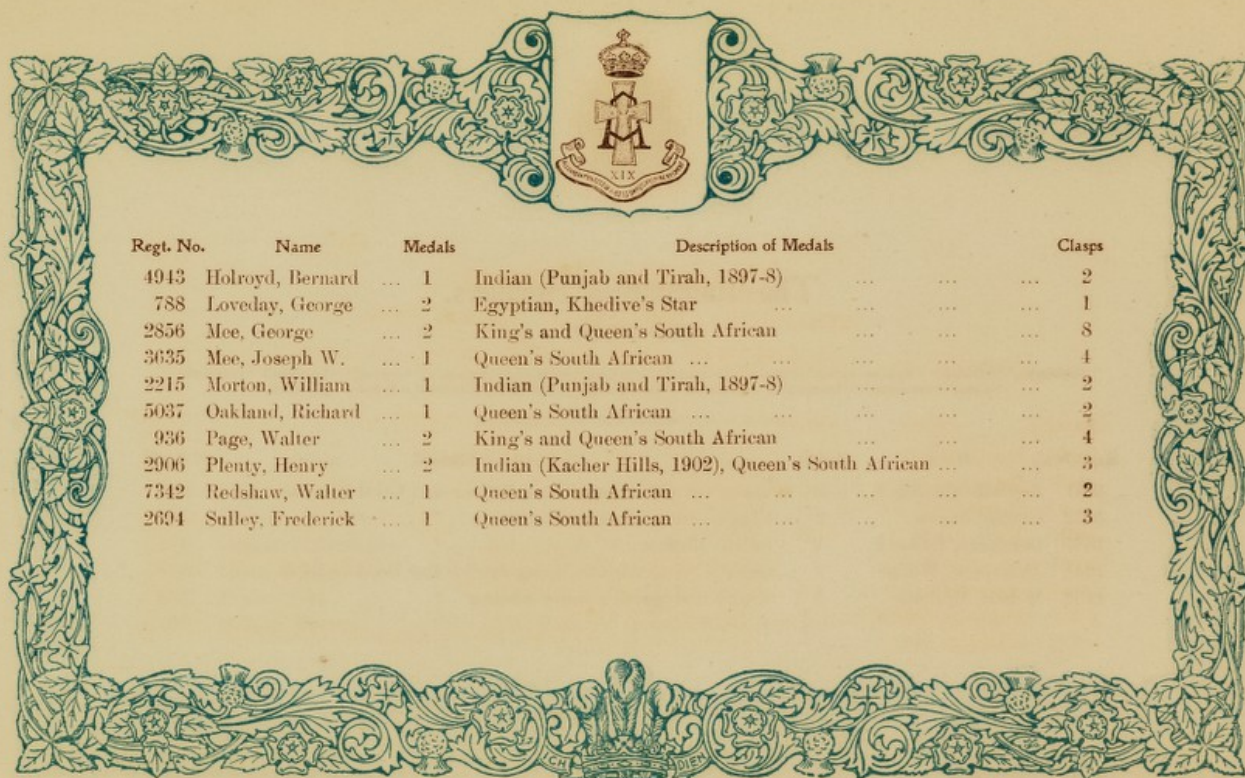 XIX
Regt. No. Name Medals Description of Medals Clasps
4943 Holroyd, Bernard ... 1 Indian (Punjab and Tirah, 1897-8) ... ... ... 2
788 Loveday, George ... 2 Egyptian, Khedive's Star ... ... ... ... 1
2856 Mee, George ... 2 King's and Queen's South African ... ... ... 8
3635 Mee, Joseph W. ... 1 Queen's South African ... ... ... ... ... 4
2215 Morton, William ... 1 Indian (Punjab and Tirah, 1897-8) ... ... ... 2
5037 Oakland, Richard ... 1 Queen's South African ... ... ... ... ... 2
936 Page, Walter ... 2 King's and Queen's South African ... ... ... 4
2906 Plenty, Henry ... 2 Indian (Kacher Hills, 1902), Queen's South African ... ... 3
7342 Redshaw, Walter ... 1 Queen's South African ... ... ... ... ... 2
2694 Sulley, Frederick ... 1 Queen's South African ... ... ... ... ... 3
ICH DIEN